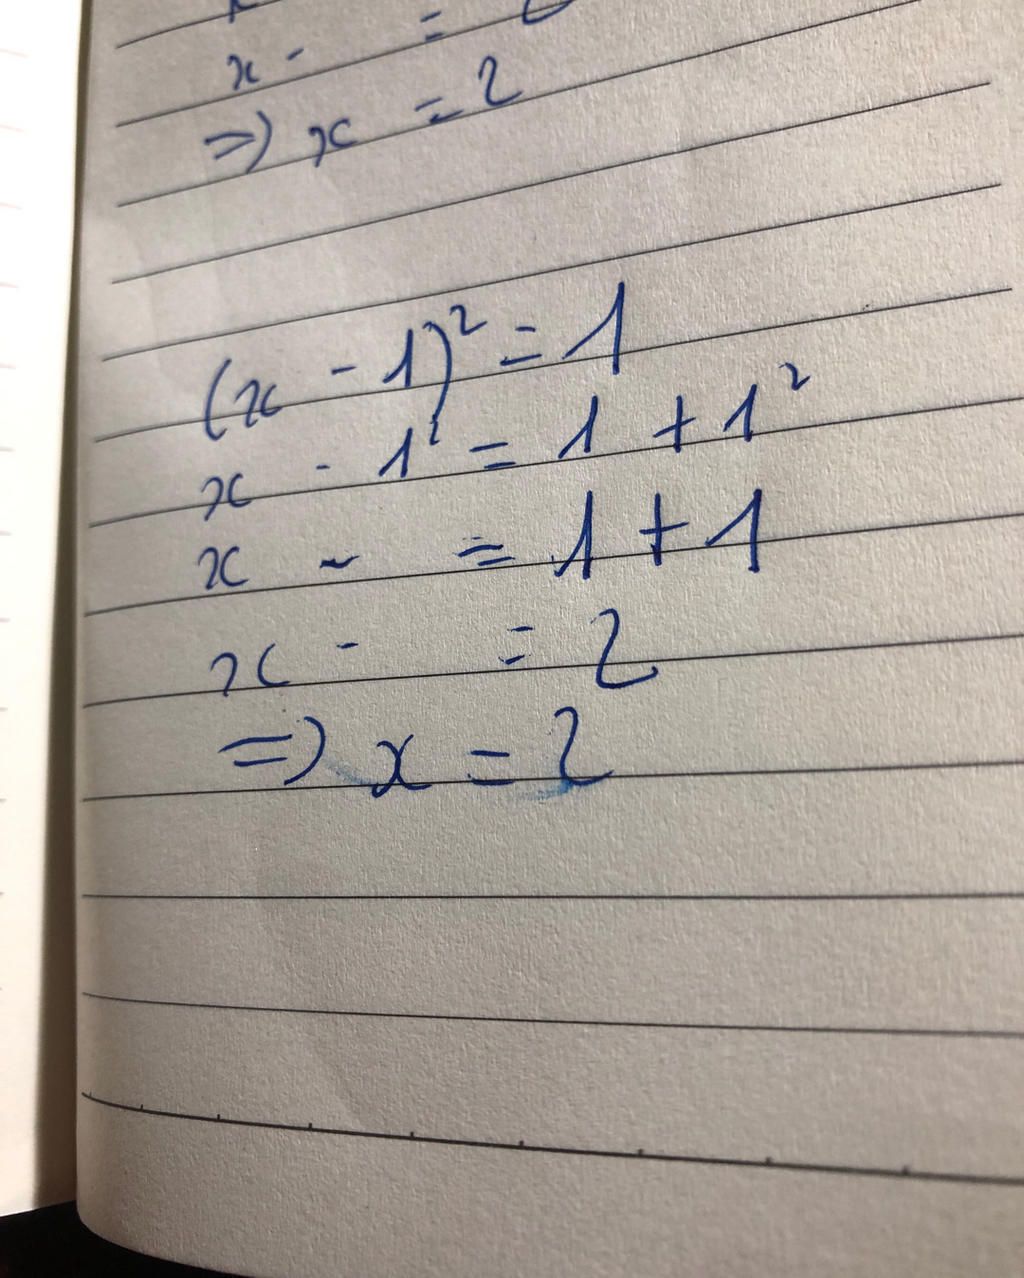 x - =
=> x = 2
(x - 1)² = 1
x - 1² = 1 + 1²
x - = 1 + 1
x - = 2
=> x = 2